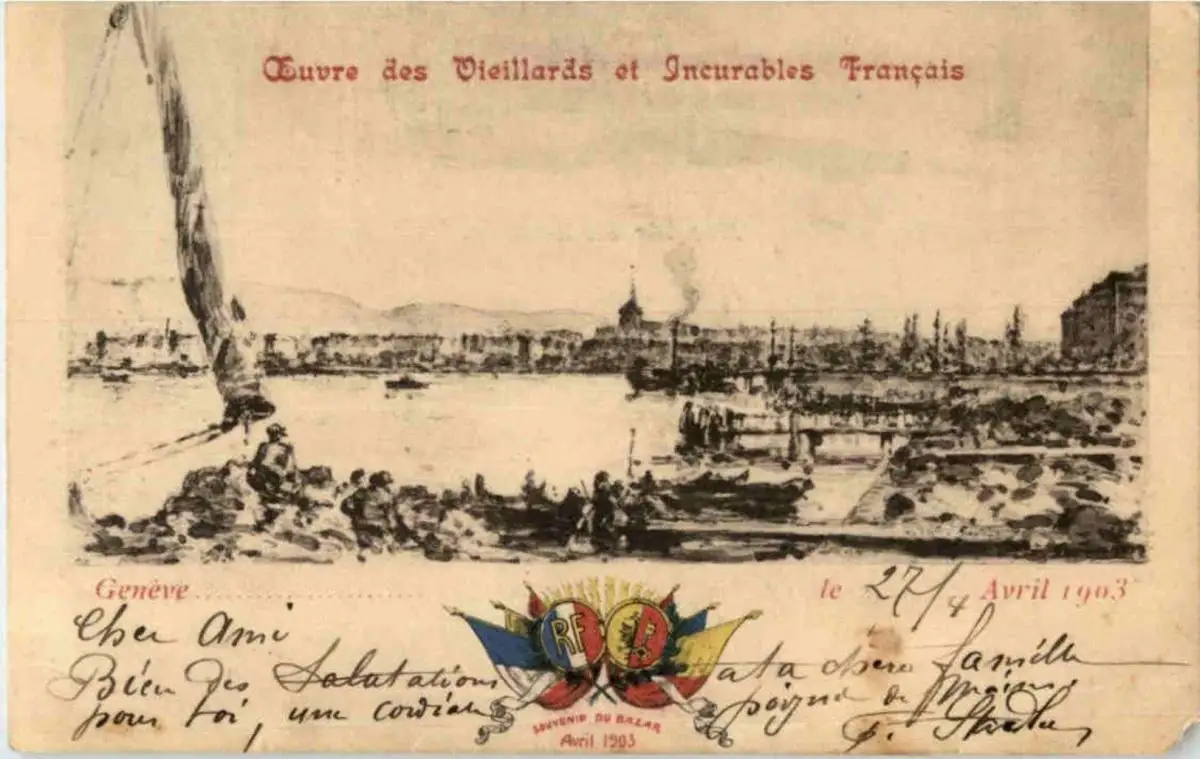 Œuvre des Vieillards et Incurables Français
Genève
le 27/4 Avril 1903
Cher Ami
Bien des Salutations a ta chère famille
pour toi, une cordiale poigné de mains.
RF
SOUVENIR DU BAZAR
Avril 1903